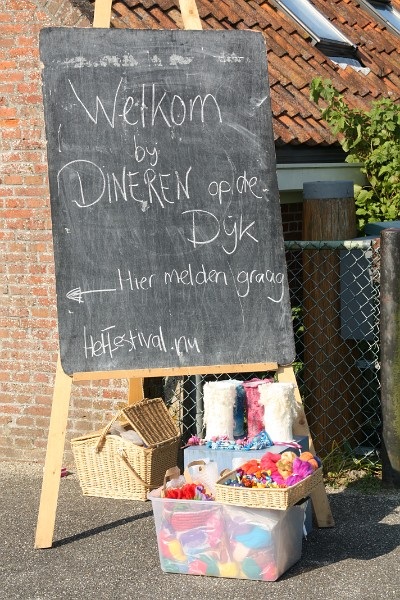 Welkom
bij
DINEREN op de
Dijk
Hier melden graag
HetFestival.nu